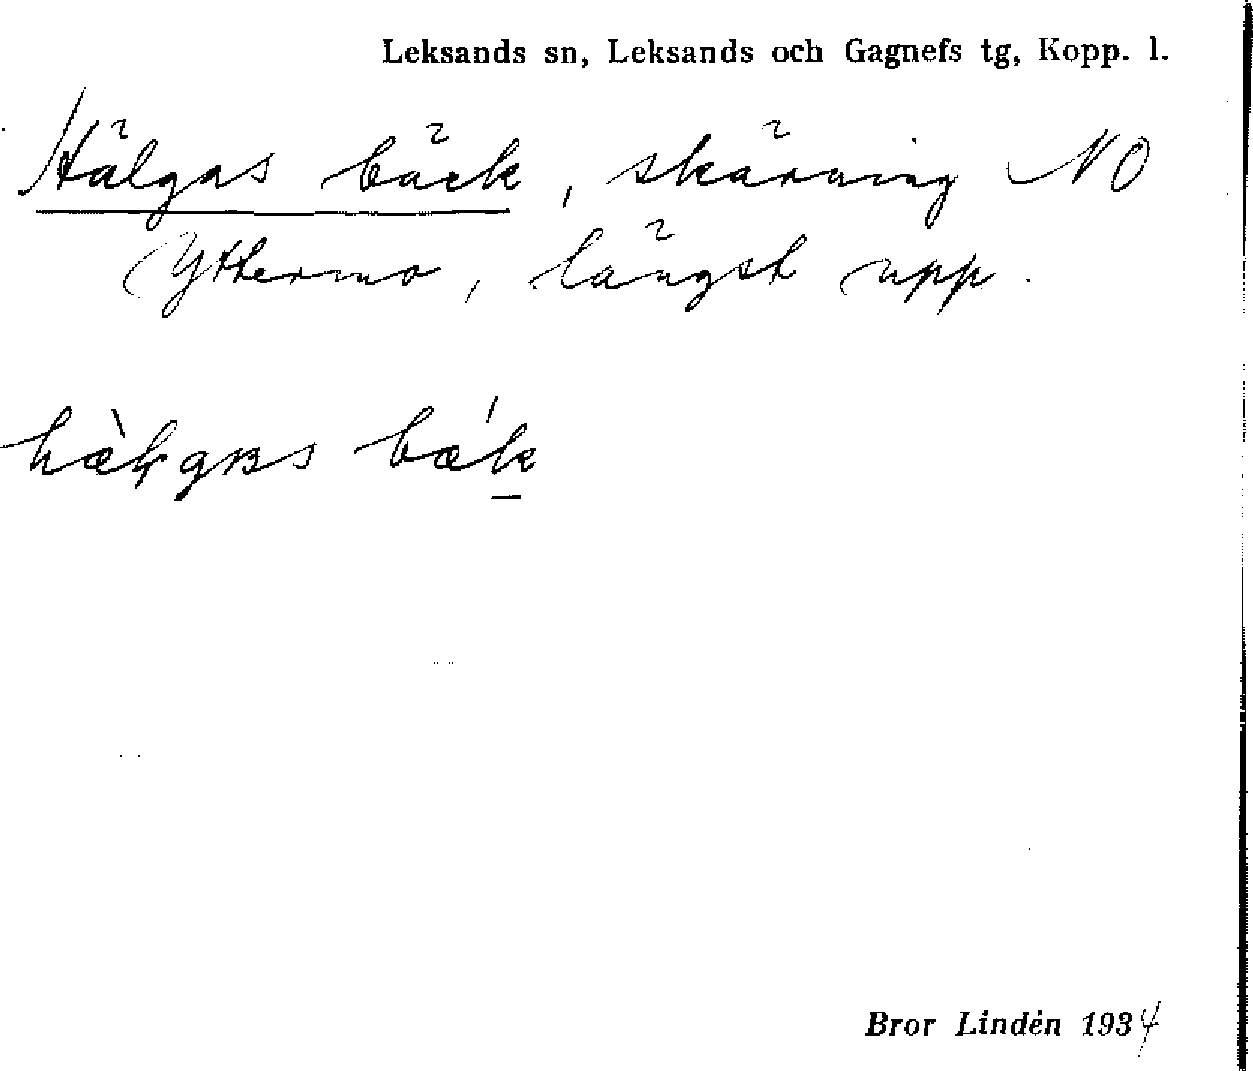 Leksands sn, Leksands och Gagnefs tg, Kopp. l.
Hälgas bäck, skärning NO
Yttermo, längst upp.
bæ̀k
Bror Lindén 1934